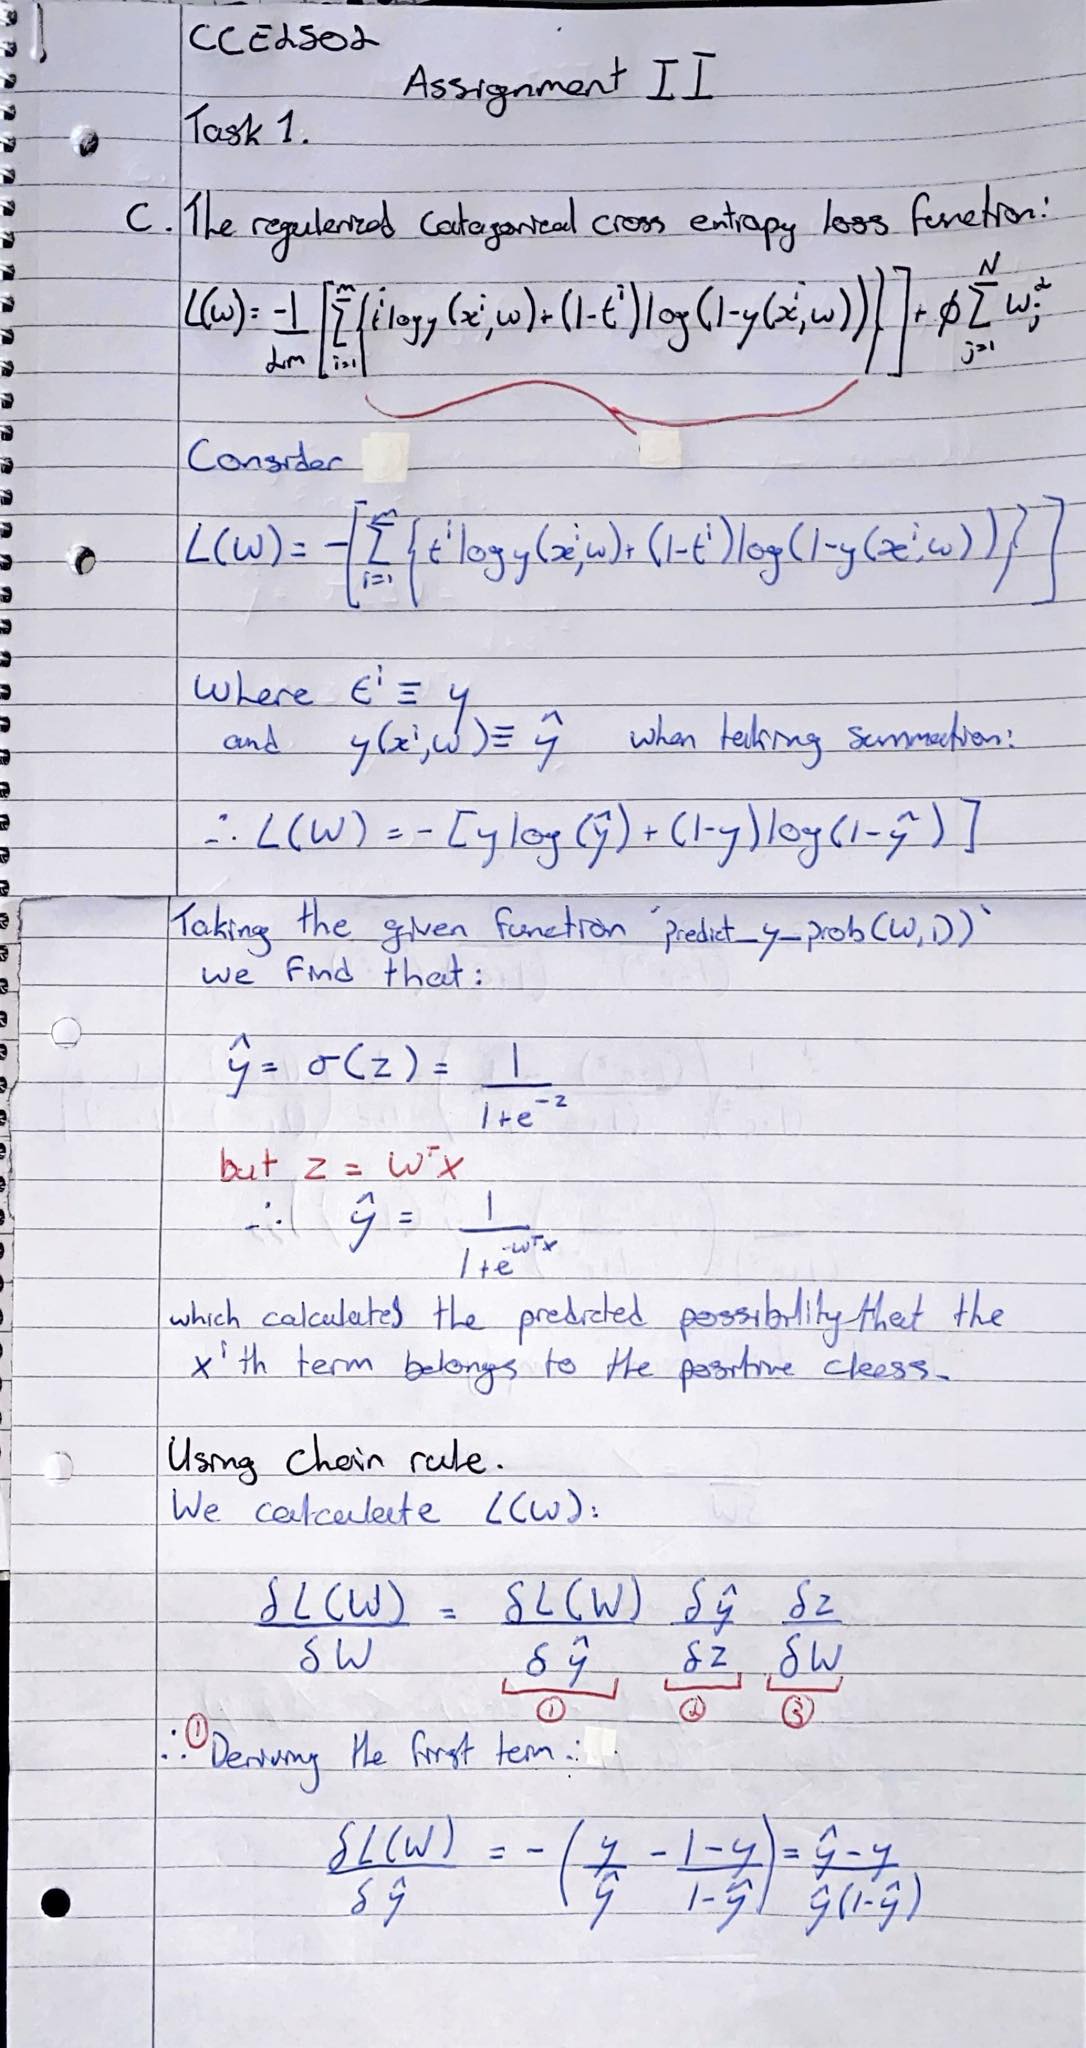 CCE2502
Assignment II
Task 1.
C. The regularized Catagorical cross entropy loss function:
L(w) = -1/2m [ Σ_{i=1}^{m} { t^i log y(x^i, w) + (1-t^i) log(1-y(x^i, w)) } ] + φ Σ_{j=1}^{N} w_j^2
Consider
L(W) = -[ Σ_{i=1}^{m} { t^i log y(x^i, w) + (1-t^i) log(1-y(x^i, w)) } ]
Where t^i ≡ y
and y(x^i, w) ≡ ŷ when taking summation:
∴ L(W) = -[y log(ŷ) + (1-y) log(1-ŷ)]
Taking the given function 'predict_y_prob(W,D)'
we find that:
ŷ = σ(z) = 1/(1+e^{-z})
but z = w^T x
∴ ŷ = 1/(1+e^{-w^T x})
which calculates the predicted possibility that the
x^i th term belongs to the positive class.
Using chain rule.
We calculate L(W):
δL(W)/δW = δL(W)/δŷ δŷ/δz δz/δW
① ② ③
∴ ① Deriving the first term:
δL(W)/δŷ = -(y/ŷ - 1-y/1-ŷ) = ŷ-y/ŷ(1-ŷ)